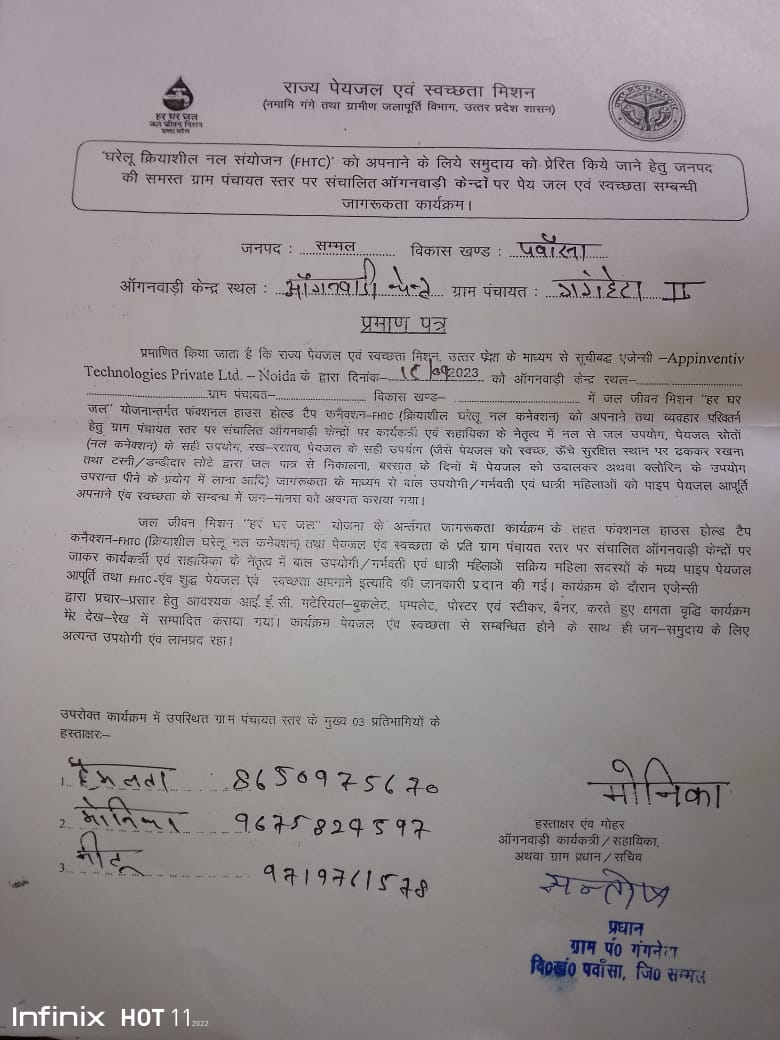 राज्य पेयजल एवं स्वच्छता मिशन
(नमामि गंगे तथा ग्रामीण जलापूर्ति विभाग, उत्तर प्रदेश शासन)
हर घर जल
जल जीवन मिशन
उत्तर प्रदेश
'घरेलू क्रियाशील नल संयोजन (FHTC)' को अपनाने के लिये समुदाय को प्रेरित किये जाने हेतु जनपद
की समस्त ग्राम पंचायत स्तर पर संचालित ऑगनवाड़ी केन्द्रों पर पेय जल एवं स्वच्छता सम्बन्धी
जागरूकता कार्यक्रम।
जनपद : सम्मल विकास खण्ड : पवाँसा
ऑगनवाड़ी केन्द्र स्थल : ऑगनवाडी केन्द्र ग्राम पंचायत : II
प्रमाण पत्र
प्रमाणित किया जाता है कि राज्य पेयजल एवं स्वच्छता मिशन, उत्तर प्रदेश के माध्यम से सूचीबद्ध एजेन्सी –Appinventiv
Technologies Private Ltd. – Noida के द्वारा दिनांक- /09/2023 को ऑगनवाड़ी केन्द्र स्थल-
ग्राम पंचायत- विकास खण्ड- में जल जीवन मिशन "हर घर
जल" योजनान्तर्गत फंक्शनल हाउस होल्ड टैप कनैक्शन-FHTC (क्रियाशील घरेलू नल कनेक्शन) को अपनाने तथा व्यवहार परिवर्तन
हेतु ग्राम पंचायत स्तर पर संचालित ऑगनवाड़ी केन्द्रों पर कार्यकर्त्री एवं सहायिका के नेतृत्व में नल से जल उपयोग, पेयजल स्रोतों
(नल कनेक्शन) के सही उपयोग, रख-रखाव, पेयजल के सही उपयोग (जैसे पेयजल को स्वच्छ, ऊँचे सुरक्षित स्थान पर ढककर रखना
तथा टस्नी/डन्डीदार लोटे द्वारा जल पात्र से निकालना, बरसात के दिनों में पेयजल को उबालकर अथवा क्लोरिन के उपयोग
उपरान्त पीने के प्रयोग में लाना आदि) जागरूकता के माध्यम से बाल उपयोगी/गर्भवती एवं धात्री महिलाओं को पाइप पेयजल आपूर्ति
अपनाने एंव स्वच्छता के सम्बन्ध में जन-मानस को अवगत कराया गया।
जल जीवन मिशन "हर घर जल" योजना के अर्न्तगत जागरूकता कार्यक्रम के तहत फंक्शनल हाउस होल्ड टैप
कनैक्शन-FHTC (क्रियाशील घरेलू नल कनेक्शन) तथा पेयजल एंव स्वच्छता के प्रति ग्राम पंचायत स्तर पर संचालित ऑगनवाड़ी केन्द्रों पर
जाकर कार्यकर्त्री एवं सहायिका के नेतृत्व में बाल उपयोगी/गर्भवती एवं धात्री महिलाओं सक्रिय महिला सदस्यों के मध्य पाइप पेयजल
आपूर्ति तथा FHTC-एंव शुद्ध पेयजल एवं स्वच्छता अपनाने इत्यादि की जानकारी प्रदान की गई। कार्यक्रम के दौरान एजेन्सी
द्वारा प्रचार-प्रसार हेतु आवश्यक आई.ई.सी. मटेरियल-बुकलेट, पम्पलेट, पोस्टर एवं स्टीकर, बैनर, करते हुए क्षमता वृद्धि कार्यक्रम
मेरे देख-रेख में सम्पादित कराया गया। कार्यक्रम पेयजल एंव स्वच्छता से सम्बन्धित होने के साथ ही जन-समुदाय के लिए
अत्यन्त उपयोगी एंव लाभप्रद रहा।
उपरोक्त कार्यक्रम में उपस्थित ग्राम पंचायत स्तर के मुख्य 03 प्रतिभागियों के
हस्ताक्षर:-
1. हेमलता 8650975670
2. मोनिका 9675829597
3. नीटू 9719761578
मोनिका
हस्ताक्षर एंव मोहर
ऑगनवाड़ी कार्यकत्री/सहायिका,
अथवा ग्राम प्रधान/सचिव
सन्तोष
प्रधान
ग्राम पं०
वि०खं० पवाँसा, जि० सम्मल
Infinix HOT 11 2022